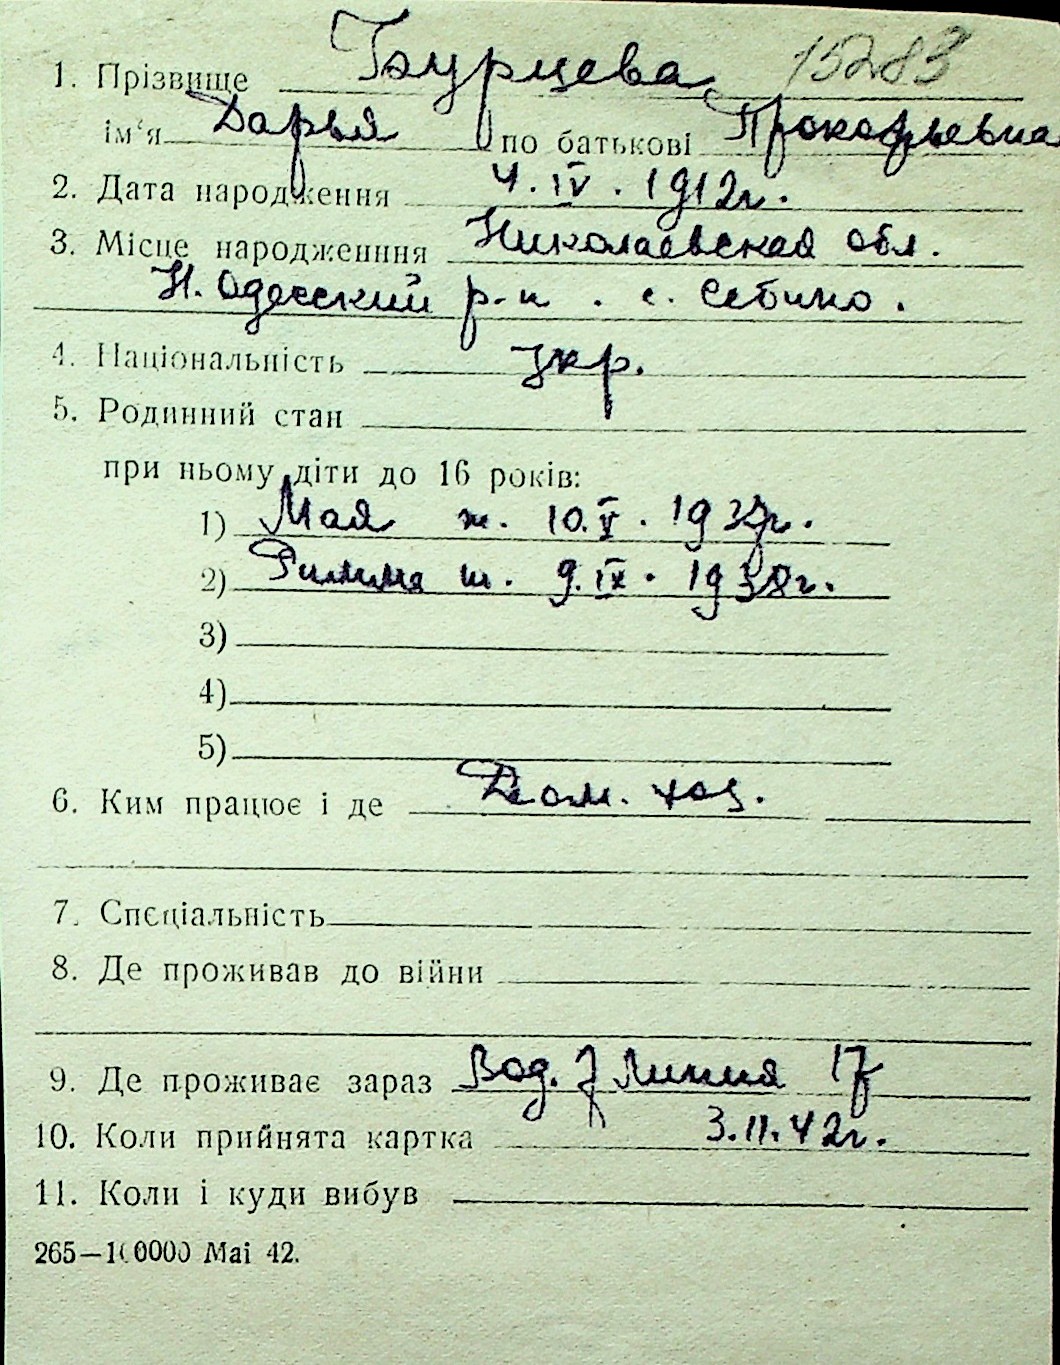 15283
1. Прізвище Бурцева
ім'я Дарья по батькові Прокофьевна
2. Дата народження 4. IV. 1912г.
3. Місце народженння Николаевская обл.
Н. Одесский р-н. с. Себино.
4. Національність Укр.
5. Родинний стан
при ньому діти до 16 років:
1) Мая ж. 10. V. 1937г.
2) Римма ж. 9. IX. 1938г.
3)
4)
5)
6. Ким працює і де Дом. хоз.
7. Спєціальність
8. Де проживав до війни
9. Де проживає зараз Вод. 7 линия 17
10. Коли прийнята картка 3. 11. 42г.
11. Коли і куди вибув
265—100000 Mai 42.